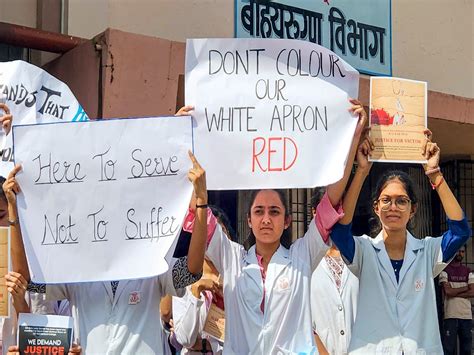 बाह्यरुग्ण विभाग
ANDS THAT
DONT COLOUR
OUR
WHITE APRON
RED
Here To Serve
Not To Suffer
JUSTICE FOR VICTIM
WE DEMAND
JUSTICE